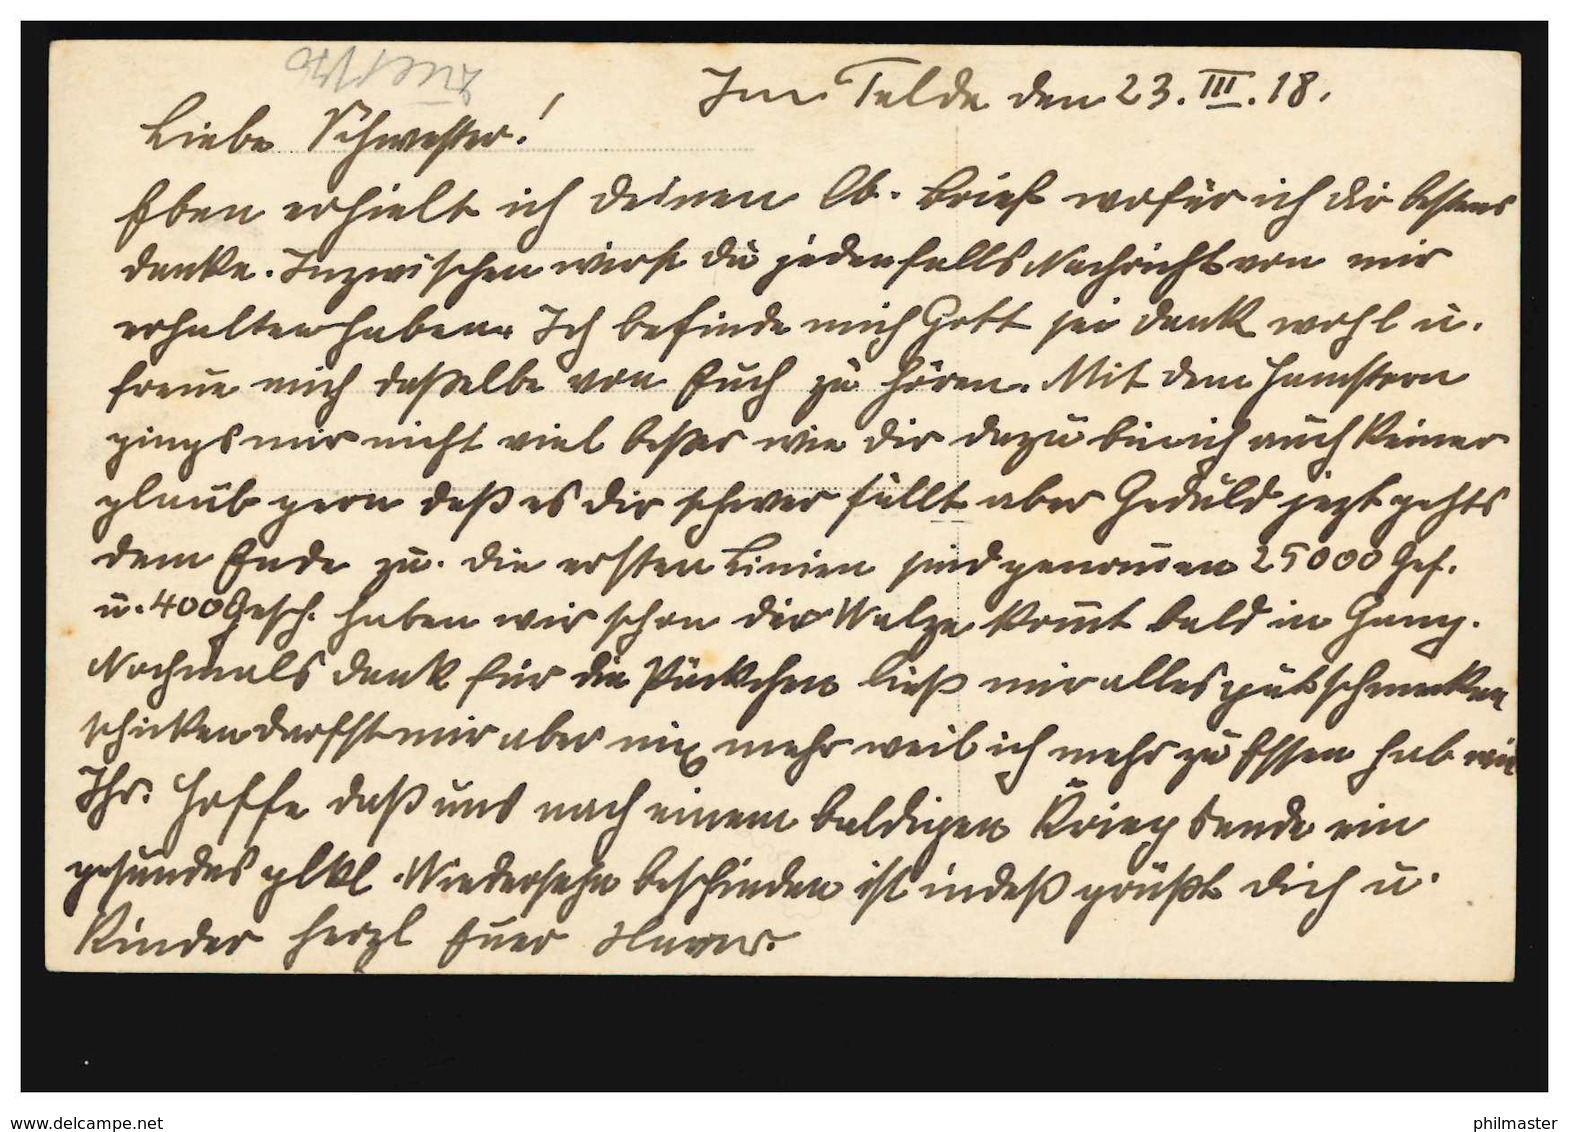 Im Felde den 23. III. 18.
Liebe Schwester!
Eben erhielt ich deinen lb. Brief wofür ich dir bestens
danke. Inzwischen wirst du jedenfalls Nachricht von mir
erhalten haben. Ich befinde mich Gott sei dank wohl u.
freue mich dasselbe von Euch zu hören. Mit dem hamstern
gings mir nicht viel besser wie dir dazu bin ich auch keiner
glaub gern daß es dir schwer fällt aber Geduld jezt gehts
dem Ende zu. die ersten Linien sind genom̄en 25000 Gef.
u. 400 Gesch. haben wir schon die Walze kom̄t bald in Gang.
Nochmals dank für die Päckchen ließ mir alles gut schmecken
schicken darfst mir aber nix mehr weil ich mehr zu Essen hab wie
Ihr. Hoffe daß uns nach einem baldigen Kriegsende ein
gesundes glkl. Wiedersehn beschieden ist indeß grüßt dich u.
Kinder herzl Euer
www.delcampe.net
philmaster